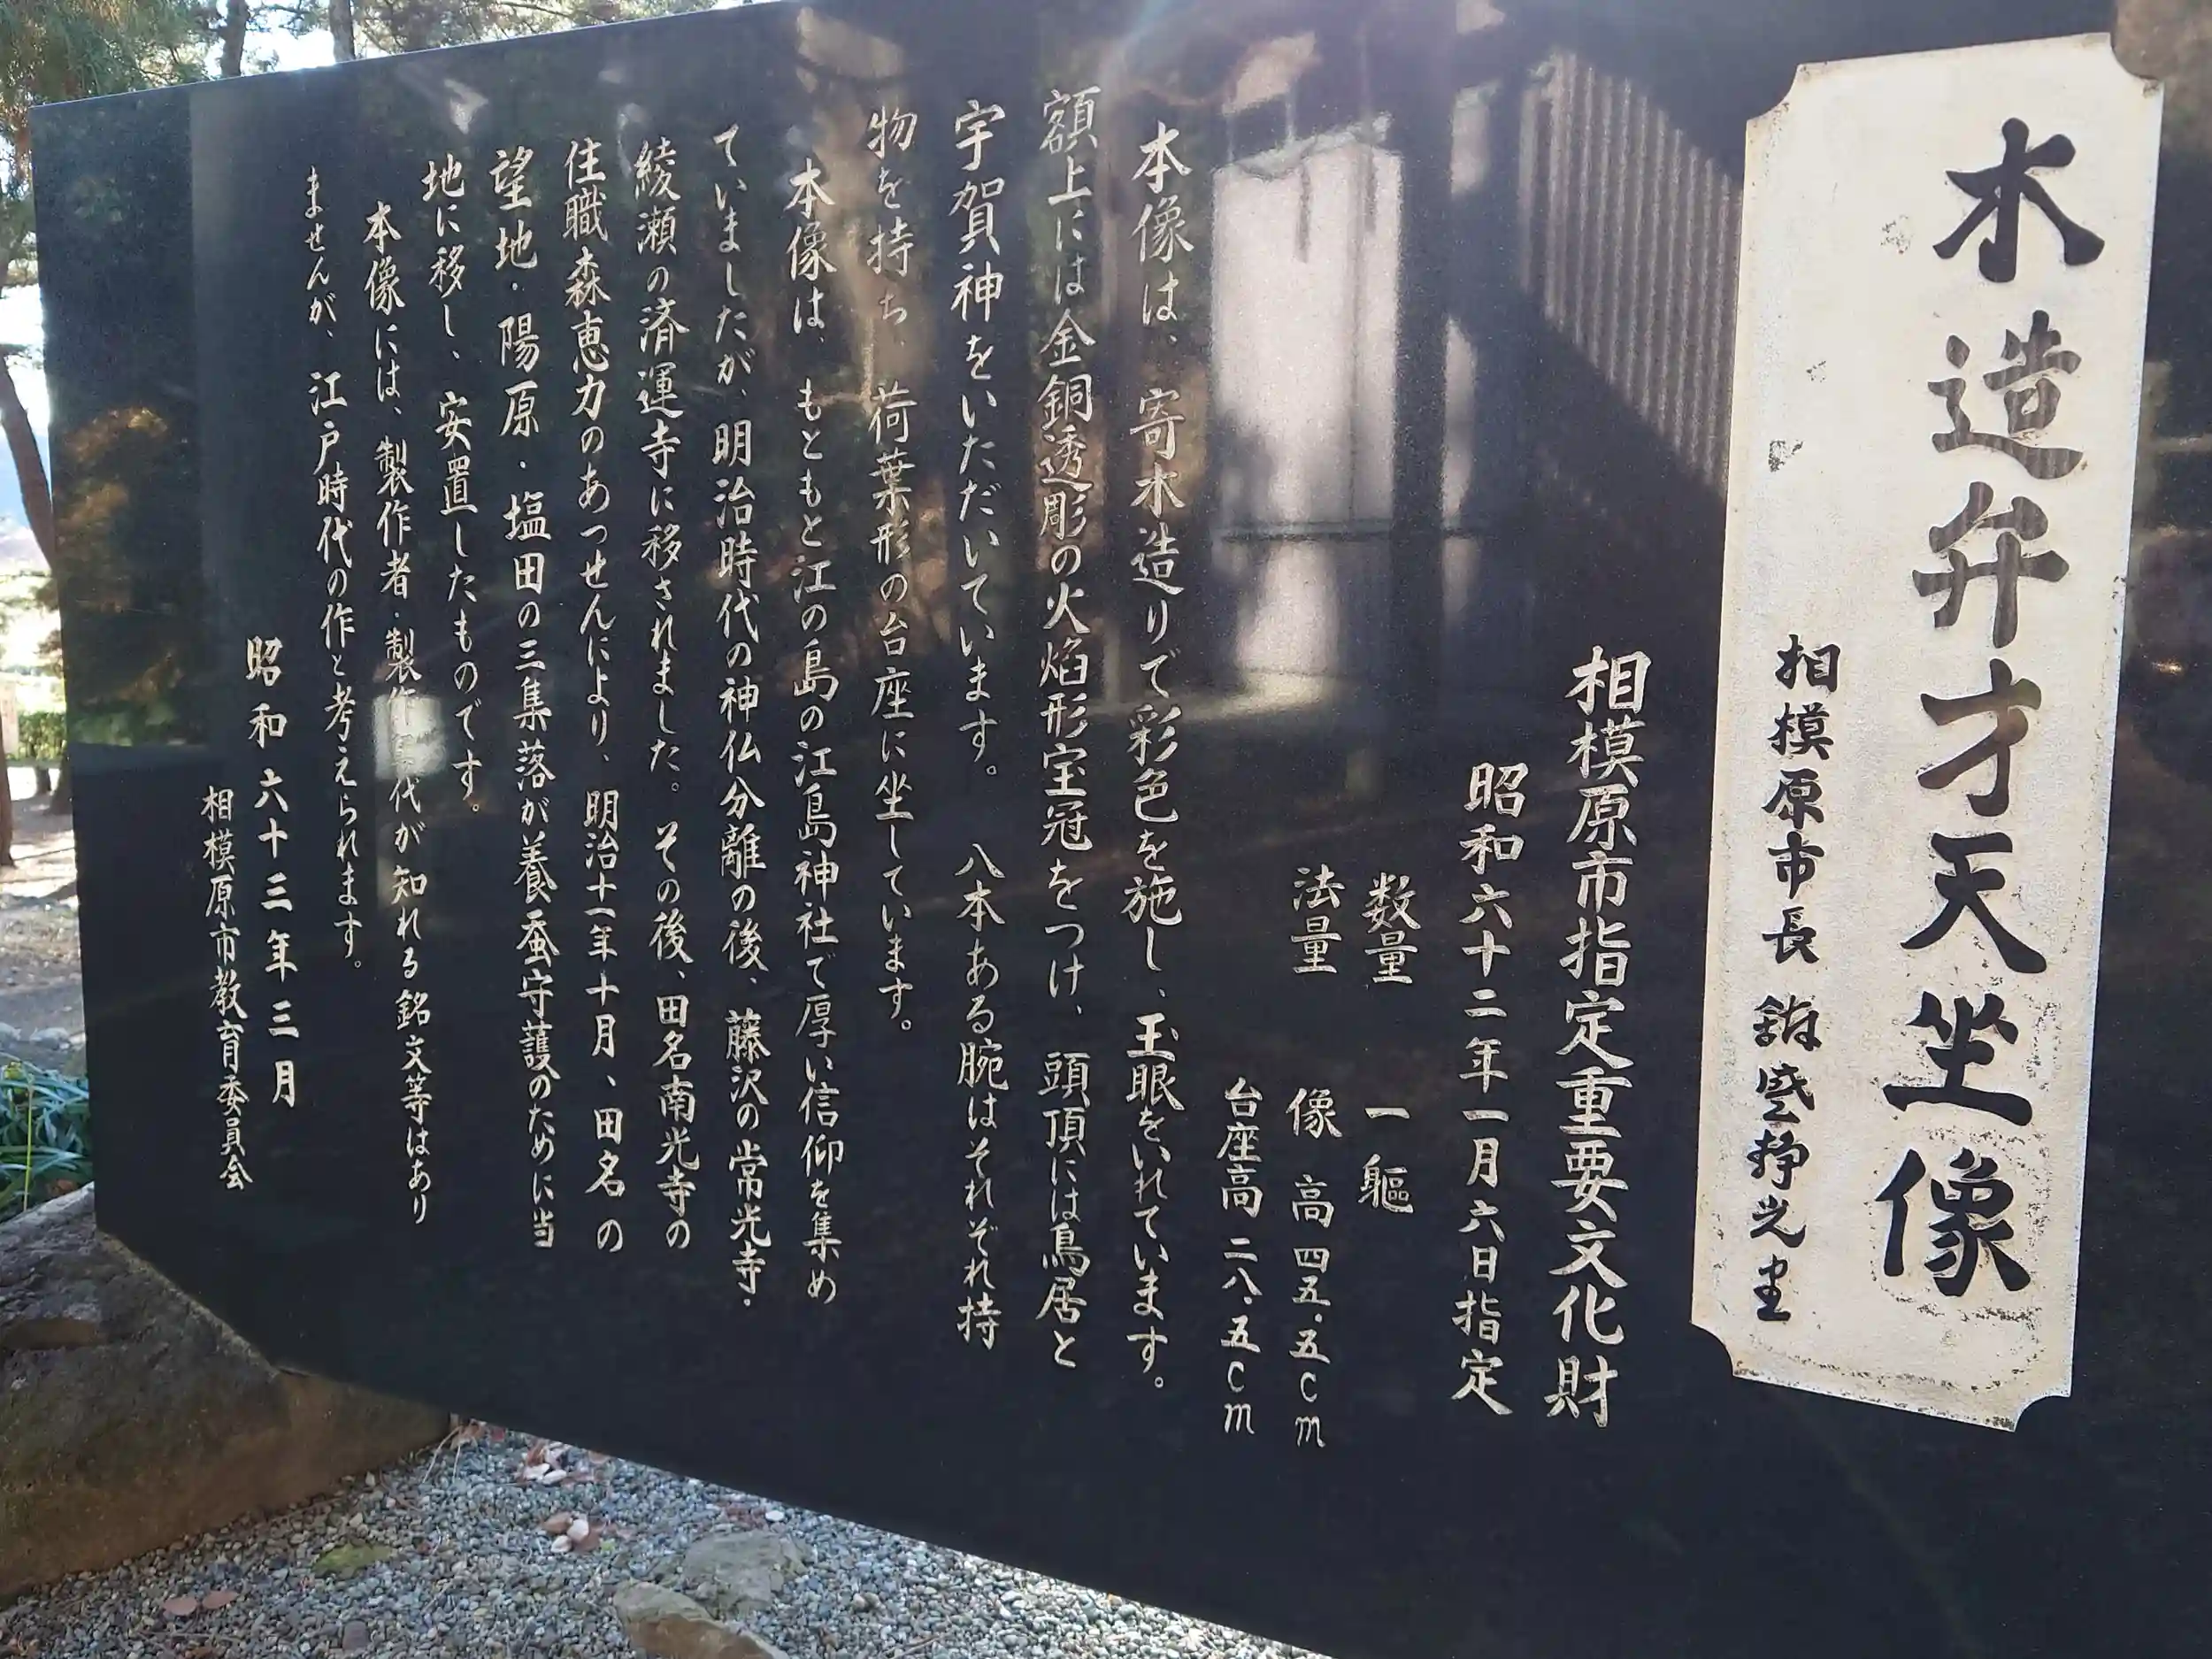 木造弁才天坐像
相模原市長
相模原市指定重要文化財
昭和六十二年一月六日指定
数量　一軀
法量　像高四五・五cm
台座高二八・五cm
本像は、寄木造りで彩色を施し、玉眼をいれています。
額上には金銅透彫の火焔形宝冠をつけ、頭頂には鳥居と
宇賀神をいただいています。　八本ある腕はそれぞれ持
物を持ち、荷葉形の台座に坐しています。
本像は、もともと江の島の江島神社で厚い信仰を集め
ていましたが、明治時代の神仏分離の後、藤沢の常光寺・
綾瀬の済運寺に移されました。その後、田名南光寺の
住職森恵力のあっせんにより、明治十一年十月、田名の
望地・陽原・塩田の三集落が養蚕守護のために当
地に移し、安置したものです。
本像には、製作者・製作年代が知れる銘文等はあり
ませんが、江戸時代の作と考えられます。
昭和六十三年三月
相模原市教育委員会